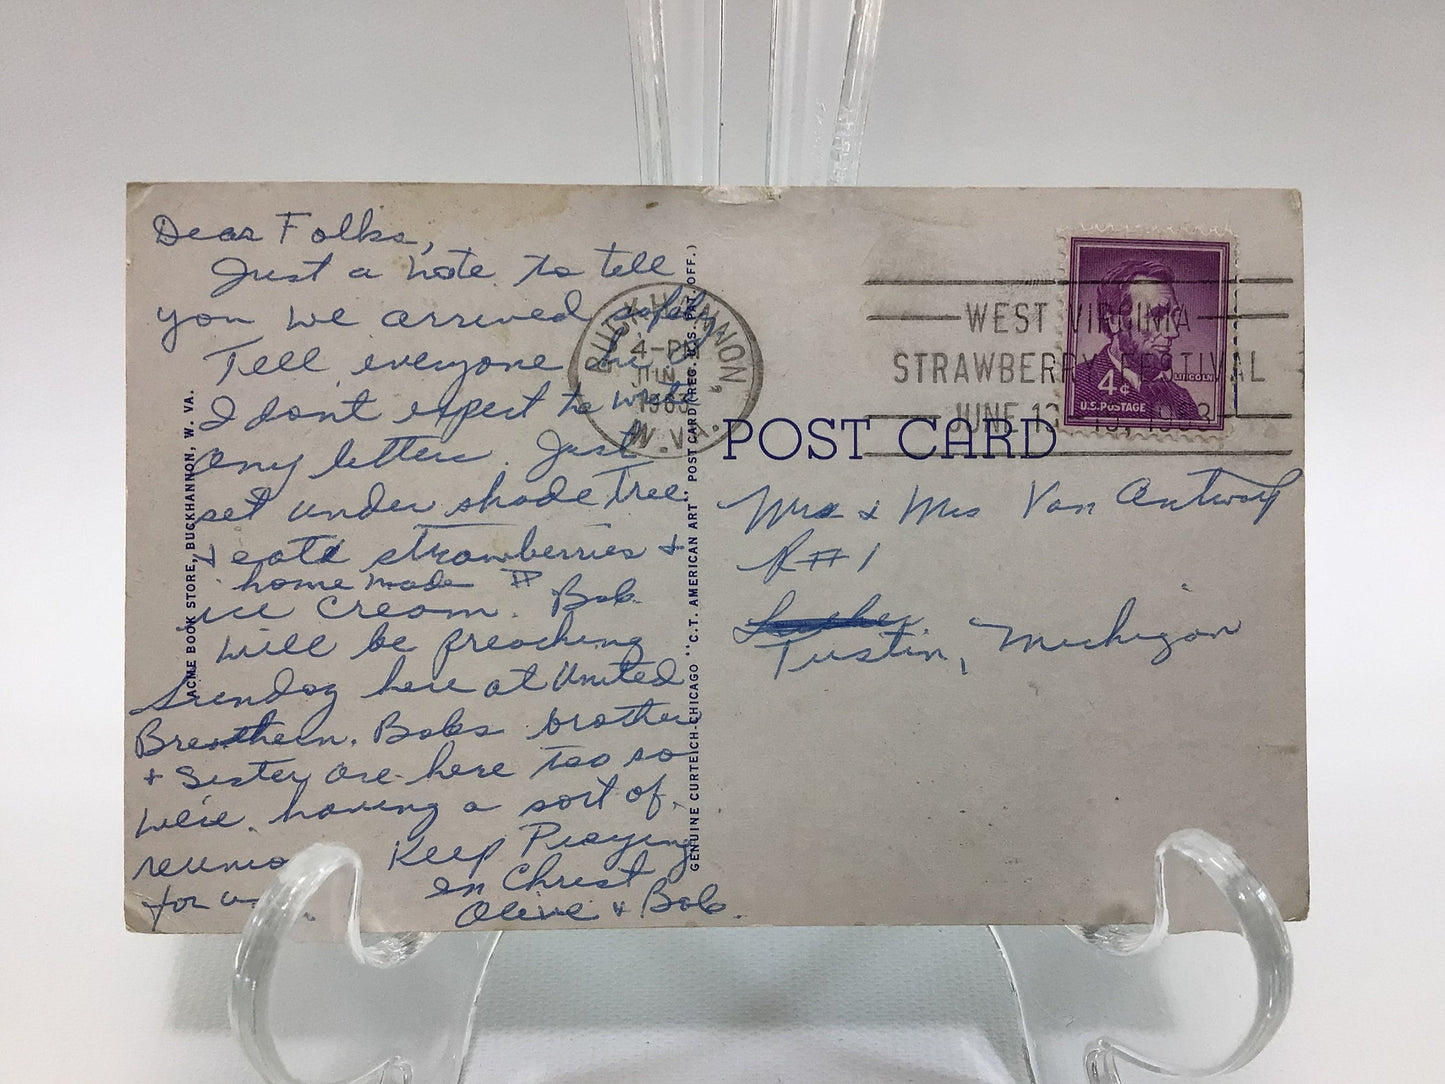 Dear Folks,
Just a note to tell
you we arrived safely.
Tell everyone hi
I don't expect to write
any letters. Just
set under shade tree
+ eat strawberries +
home made
ice cream. Bob
will be preaching
Sunday here at United
Brethern. Bobs brother
+ Sister are here too so
we're having a sort of
reunion Keep Praying
for us
in Christ
Olive + Bob.
ACME BOOK STORE, BUCKHANNON, W. VA.
GENUINE CURTEICH-CHICAGO "C.T. AMERICAN ART" POST CARD (REG. U.S. PAT. OFF.)
BUCKHANNON
4-PM
JUN
1963
W. VA.
WEST VIRGINIA
STRAWBERRY FESTIVAL
JUNE 13 15, 1963
LINCOLN
4¢
U.S. POSTAGE
POST CARD
Mr & Mrs Van Antwerp
R#1
Luther
Tustin, Michigan